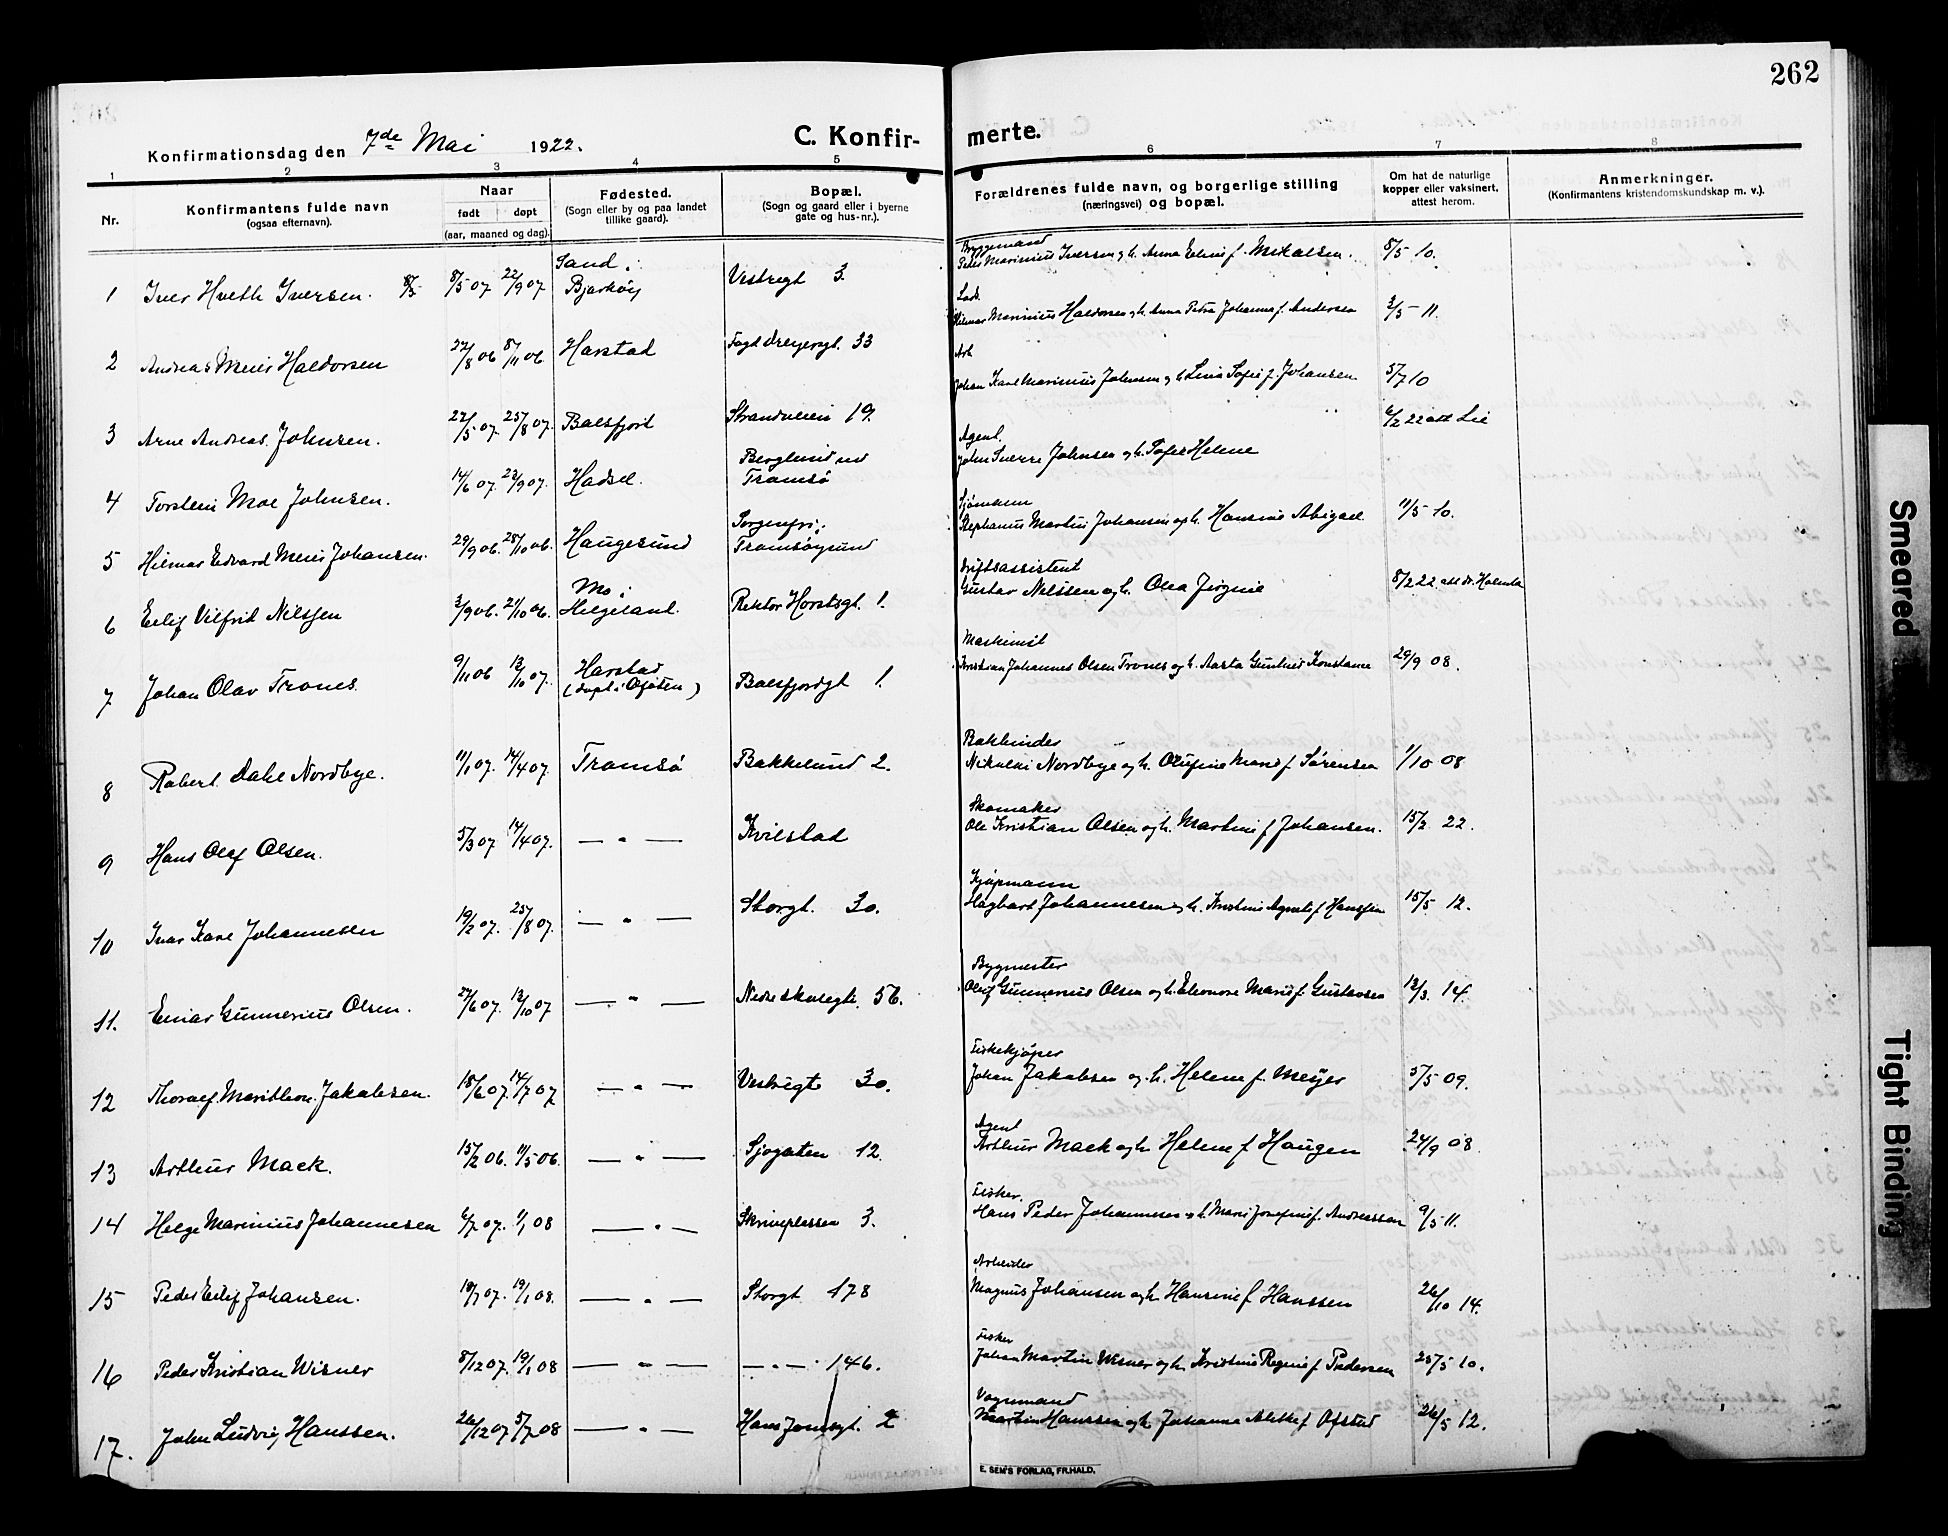 262
Konfirmationsdag den 7de Mai 1922.
C. Konfir- merte.
1 2 3 4 5 6 7 8
Nr.
Konfirmantens fulde navn
(ogsaa efternavn).
Naar
født døpt
(aar, maaned og dag).
Fødested.
(Sogn eller by og paa landet
tillike gaard).
Bopæl.
(Sogn og gaard eller i byerne
gate og hus-nr.).
Forældrenes fulde navn, og borgerlige stilling
(næringsvei) og bopæl.
Om hat de naturlige
kopper eller vaksinert,
attest herom.
Anmerkninger.
(Konfirmantens kristendomskundskap m. v.).
Sand i Bryggemand
1 Iver Hveth Iversen. 8/5 07 22/9 07 Bjarkøy Vestregt 3. Peder Marinius Iversen og h. Anna Eline f. Mikalsen. 8/5 10.
2 Andreas Meier Haldorsen 22/8 06 8/11 06 Harstad Fogd Dreyersgt. 33 Hilmar Marinius Haldorsen og h. Anna Petra Johanna f. Andersen 3/5 - 11.
Arb
3 Arne Andreas Johnsen. 22/5 07. 25/8 07. Balsfjord Strandveien 19. Johan Karl Marinius Johnsen og h. Lina Sofie f. Johansen 5/7 10
Agent.
4 Torstein Moe Johnsen. 14/6 07. 22/9 07. Hadsel. Berglund ved Tromsø John Sverre Johnsen og h. Sofie Helene 6/2 22 att Lie
Sjømann
5 Hilmar Edvard Meier Johansen. 29/9 06. 28/10 06. Haugesund Sorgenfri, Tromsøysund Stephanus Martin Johansen og h. Hansine Abigael 11/5 10.
Driftsassistent
6 Eilif Vilfrid Nilssen 3/9 06. 21/10 06. Mo i Helgeland. Rektor Horstsgt 1. Gustav Nilssen og h. Olea Jørgine 8/2 22 att dr. Holmboe
Maskinist
7 Johan Olav Trones. 9/11 06 13/10 07. Harstad (døpt i Ofoten) Balsfjordgt 1. Kristian Johannes Olsen Trones og h. Aasta Gunhild Konstanse 29/9 08.
Bokbinder
8 Robert Dahl Nordbye. 11/1 07. 14/4 07. Tromsø Bakkelund 2. Nikolai Nordbye og h. Olufine Marie f. Sørensen 1/10 08
Skomaker
9 Hans Olaf Olsen. 5/3 07 14/4 07. — " — Kvilstad Ole Kristian Olsen og h. Martine f. Johansen. 15/2 22.
Kjøpmann
10 Ivar Kare Johannesen 19/2 07. 25/8 07. — " — Storgt. 30. Hagbart Johannesen og h. Kristine Agnete f. Hanssen 15/5 12.
Bygmester
11. Einar Gunnerius Olsen. 27/6 07. 13/10 07 — " — Nedre skolegt. 56. Oluf Gunnerius Olsen og h. Eleonore Marie f. Gustavsen 13/3. 14.
Fiskekjøper
12 Thoralf Marithon Jakobsen. 18/6 07. 14/7 07 — " — Vestregt 30. Johan Jakobsen og h. Helene f. Meyer 5/5 09.
Agent
13 Arthur Mack. 15/2 06. 11/5 06. — " — Sjøgaten 12. Arthur Mack og h. Helene f. Haugen 24/9 08.
Fisker.
14 Helge Marinius Johannesen 6/7 07. 1/1 08 — " — Skriverplassen 3. Hans Peder Johannesen og h. Marie Josefine f. Andreassen 9/5 11.
Arbeider
15 Peder Eilif Johansen. 18/7 07. 19/1 08. — " — Storgt 178 Magnus Johansen og h. Hansine f. Hanssen 26/10 14.
Fisker
16 Peder Kristian Wisner 8/12 07. 19/1 08 — " — — " — 146. Johan Martin Wisner og h. Kristine Regine f. Pedersen 25/5 10.
Vognmand
17. John Ludvig Hanssen. 26/12 07 5/7 08 — " — Hans Jonsegt. 2 Martin Hanssen og h. Johanna Aletke f. Ofstad 26/5 12.
E. SEM'S FORLAG, FR.HALD.
Smeared
Tight Binding